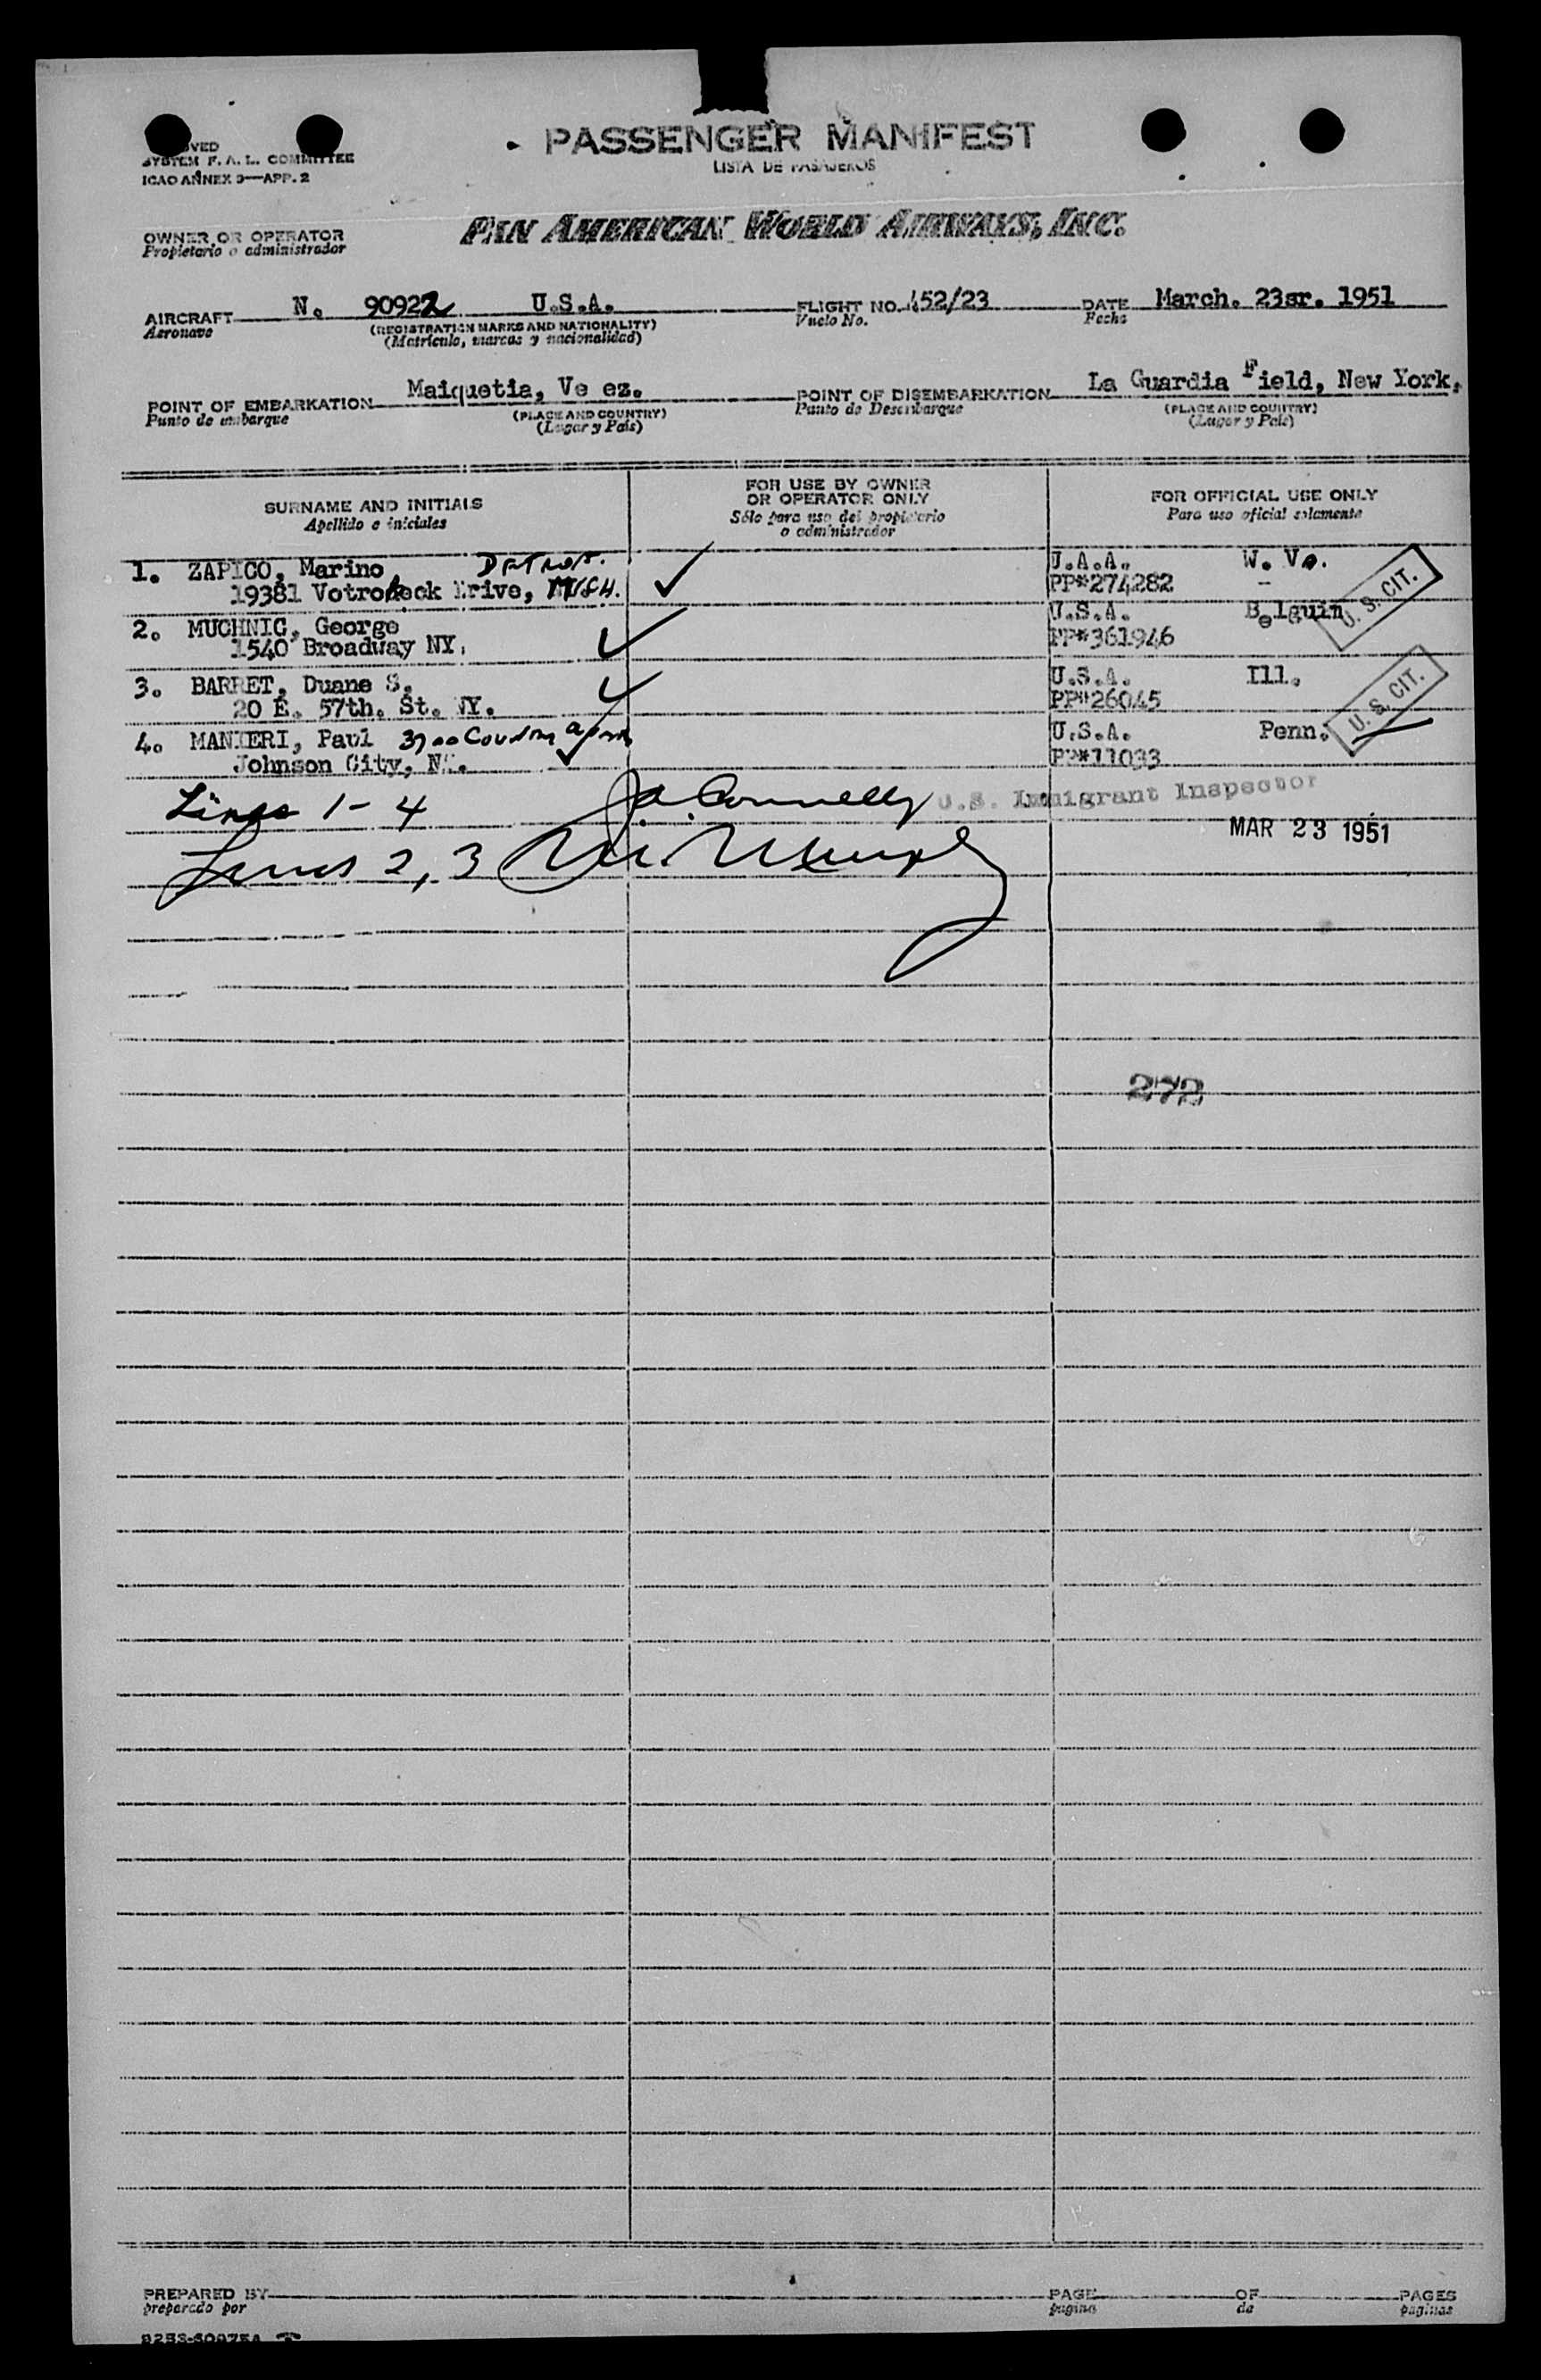 PASSENGER MANIFEST
LISTA DE PASAJEROS
SYSTEM F. A. L. COMMITTEE
ICAO ANNEX 9—APP. 2
OWNER OR OPERATOR
Propietario o administrador
PAN AMERICAN WORLD AIRWAYS, INC.
AIRCRAFT N. 90922 U.S.A. FLIGHT NO. 452/23 DATE March. 23sr. 1951
Aeronave (REGISTRATION MARKS AND NATIONALITY) Vuelo No. Fecha
(Matrícula, marcas y nacionalidad)
POINT OF EMBARKATION Maiquetia, Ve ez. POINT OF DISEMBARKATION La Guardia Field, New York.
Punto de embarque (PLACE AND COUNTRY) Punto de Desembarque (PLACE AND COUNTRY)
(Lugar y País) (Lugar y País)
SURNAME AND INITIALS
Apellido e iniciales
FOR USE BY OWNER
OR OPERATOR ONLY
Sólo para uso del propietario
o administrador
FOR OFFICIAL USE ONLY
Para uso oficial solamente
1. ZAPICO, Marino DETROIT. U.A.A. W. Va.
19381 Votrobeck Drive, MICH. PP#274282
U. S. CIT.
2. MUCHNIC, George U.S.A. Belguin
1540 Broadway NY. PP#361946
3. BARRET, Duane S. U.S.A. Ill.
20 E. 57th. St. NY. PP#26045
U. S. CIT.
4. MANIERI, Paul 3700 Country U.S.A. Penn.
Johnson City, N. PP#11033
Lines 1-4 J.A. Connelly U.S. Immigrant Inspector
MAR 23 1951
Lines 2, 3
272
PREPARED BY PAGE OF PAGES
preparado por pagina de paginas